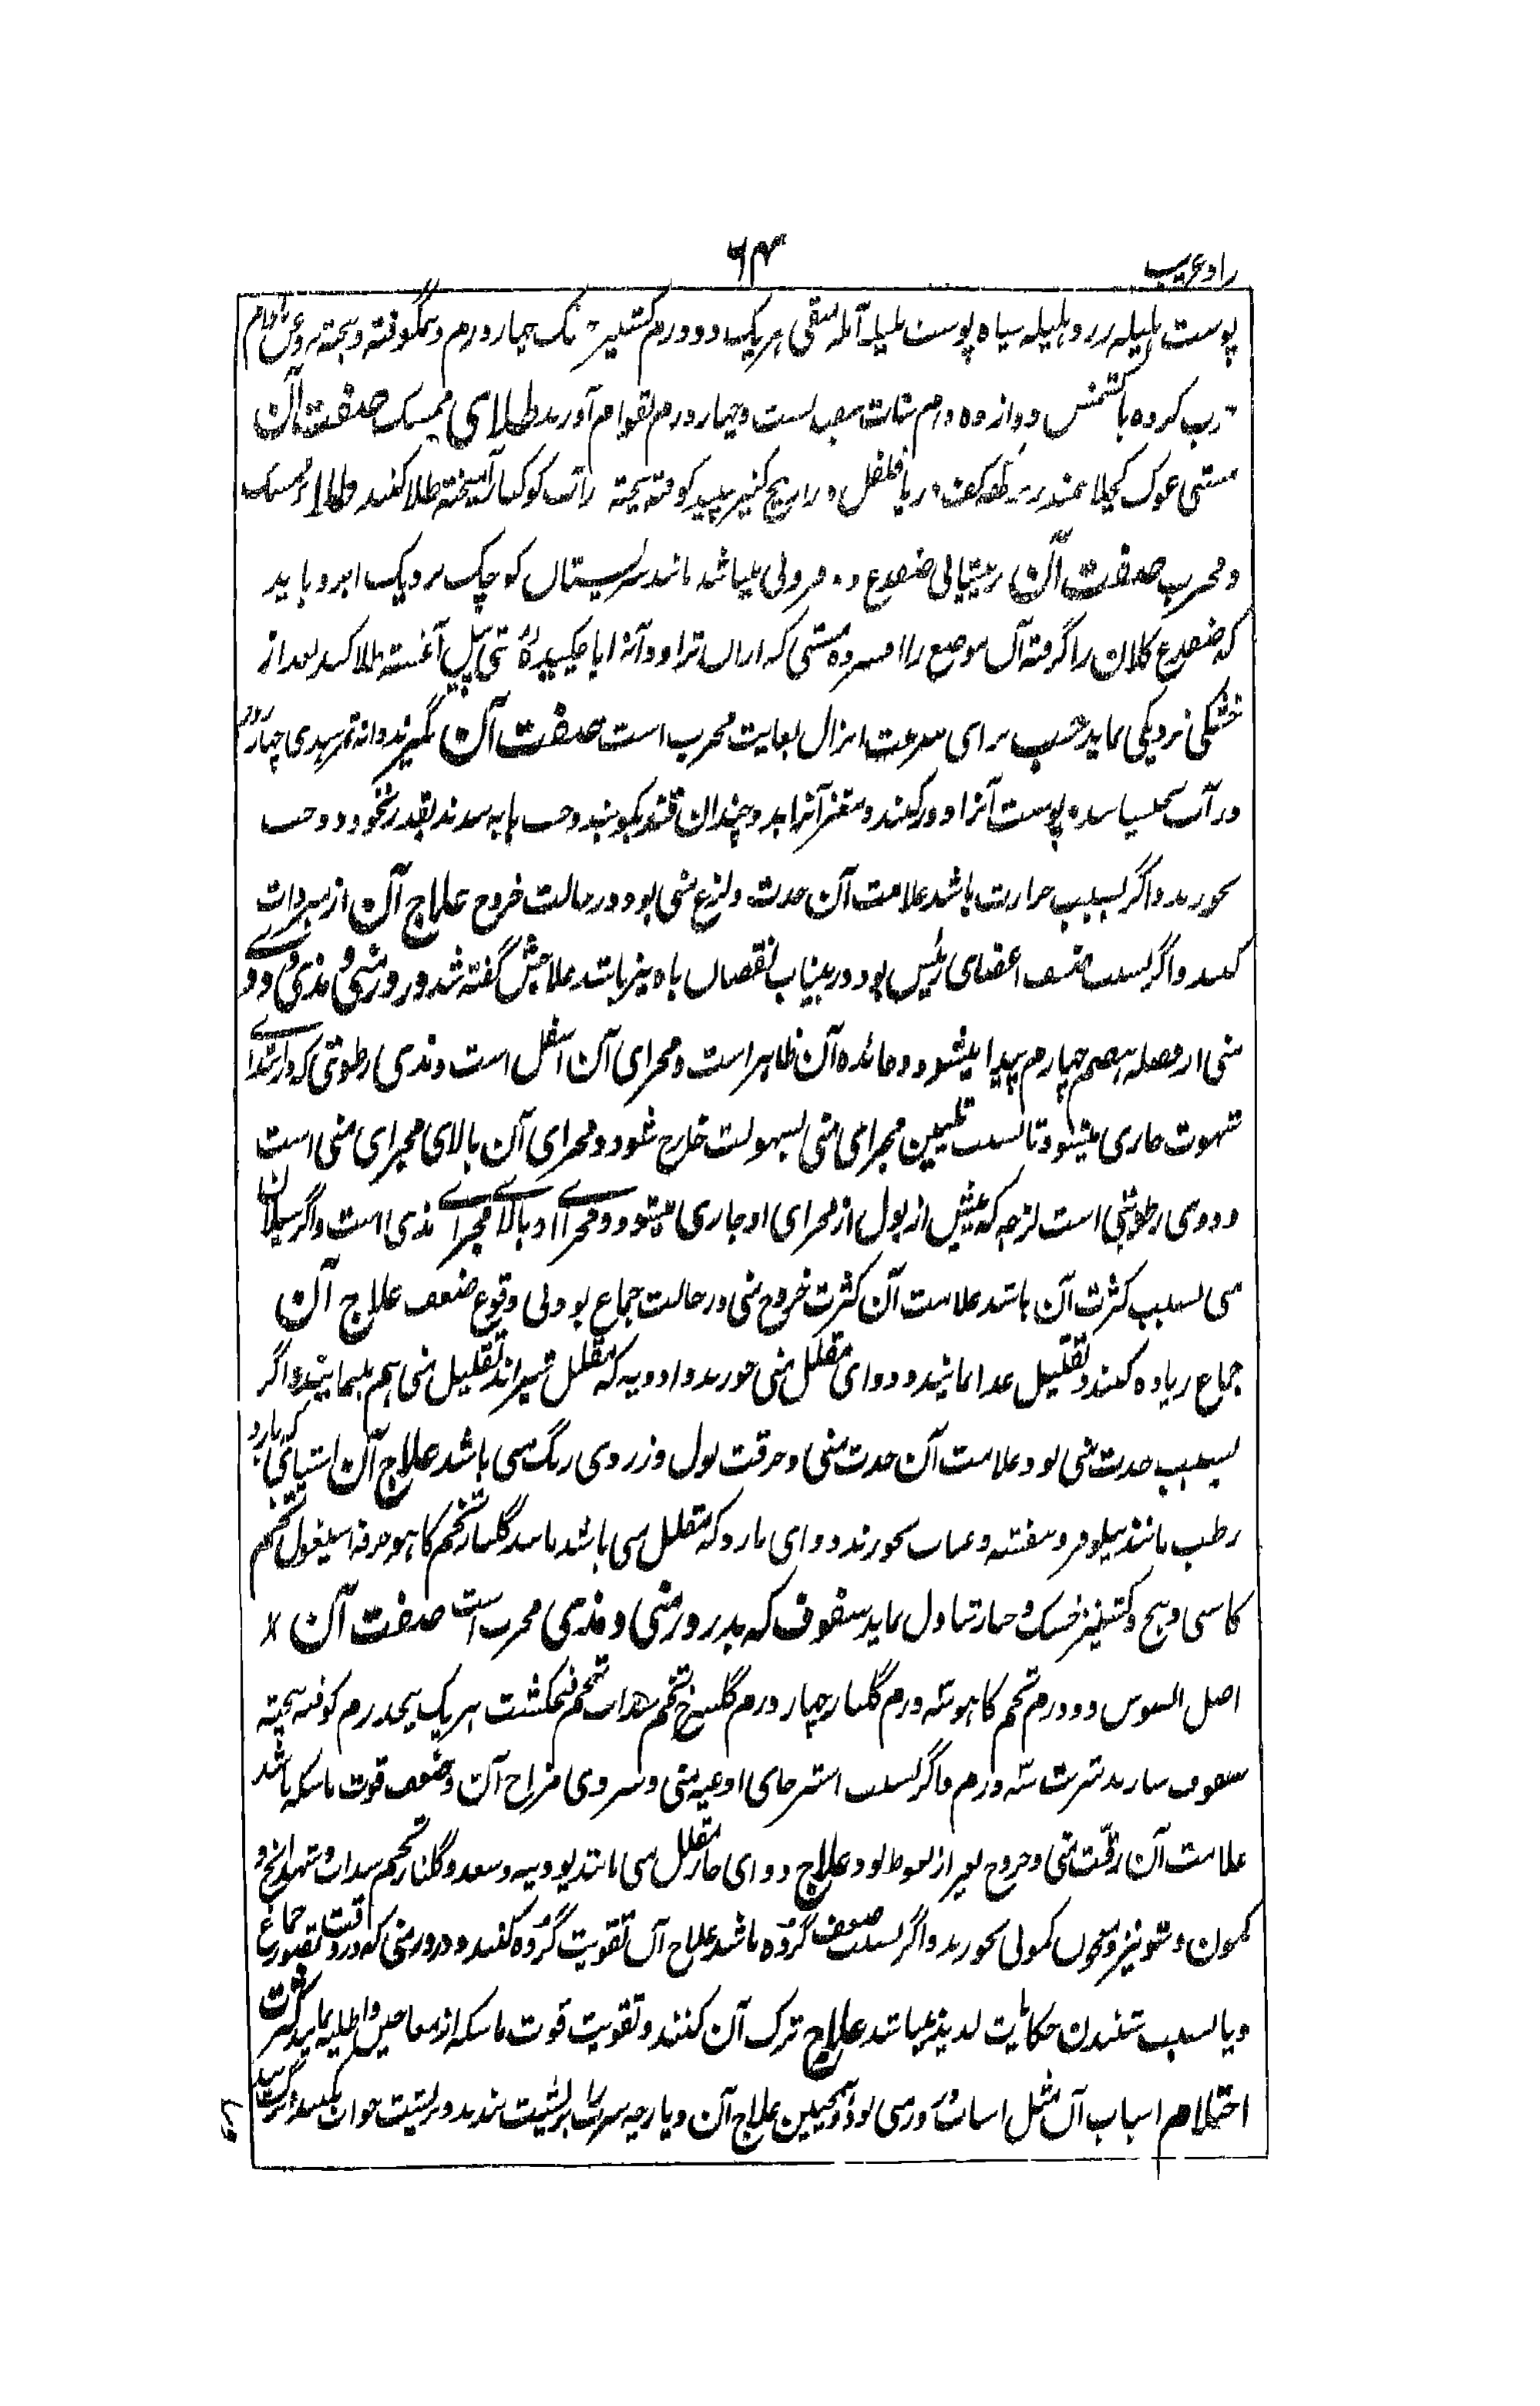 زاد غریب
۶۴
پوست ہلیلہ زرد ہلیلہ سیاہ پوست بلیلہ آملہ منقی ہریک دو درم کشنیز خشک چہار درم ہمہ کوفتہ و بیختہ بروغن بادام
چرب کردہ با کشمش دوازدہ درم نبات سفید بست و چہار درم بقوام آورند طلای ممسک صفت آن
کوفتہ بیختہ آمیختہ طلا کنند طلای ممسک
و مجرب صفت آن مانند سرپستان کوچک نزدیک ابرو باید
کہ ضفدع کلان را گرفتہ آن موضع را آغشتہ طلا کنند بعد از
خشکی نزدیکی نماید حب برای سرعت انزال بغایت مجرب است صفت آن بگیرند دانہ تمر ہندی چہار درم
در آب پوست آنرا دور کنند و مغز آنرا بدو چندان قند بکوبند و حب بندند بقدر نخود دو حب
بخورند و اگر بسبب حرارت باشد علامت آن حدت و لزع منی بود در حالت خروج علاج آن از مبردات
کنند و اگر بسبب ضعف اعضای رئیس بود درینباب نقصان باہ نیز باشد علاجش گفتہ شد درور منی و مذی و ودی
منی از فضلہ ہضم چہارم پیدا میشود و فائدہ آن ظاہر است و مجرای آن اسفل است و مذی رطوبتی کہ در ابتدای
شہوت جاری میشود تا بسبب تلیین مجرای منی بسہولت خارج شود و مجرای آن بالای مجرای منی است
و ودی رطوبتی است لزجہ کہ پیش از بول از مجرای او جاری میشود و مجرای او بالای مجرای مذی است و اگر سیلان
منی بسبب کثرت آن باشد علامت آن کثرت خروج منی در حالت جماع بود بی وقوع ضعف علاج آن
جماع زیادہ کنند و تقلیل غذا نمایند و دوای مقلل منی خورند و ادویہ کہ مقلل شیراند تقلیل منی ہم مینمایند و اگر
بسبب حدت منی بود علامت آن حدت منی و حرقت بول و زردی رنگ منی باشد علاج آن اشیائی کہ بارد
رطب مانند نیلوفر و بنفشہ و عناب بخورند و دوای بارد کہ مقلل منی باشد مانند گلنار تخم کاہو خرفہ اسپغول تخم
کاسنی و بیخ و کشنیز خشک و خیار تناول نماید سفوف کہ بدرور منی و مذی مجرب است صفت آن
اصل السوس دو درم تخم کاہو سہ درم گلنار چہار درم گلسرخ تخم سداب تخم فنجنکشت ہریک پنجدرم کوفتہ بیختہ
سفوف سازند شربت سہ درم و اگر بسبب استرخای اوعیہ منی و سردی مزاج آن و ضعف قوت ماسکہ باشد
علامت آن رقت منی و خروج بغیر از نعوظ بود علاج دوای حار مقلل منی مانند پودینہ و سعد و گلنار تخم سداب و شہدانج و
کمون و شونیز و معجون کمونی بخورند و اگر بسبب ضعف گردہ باشد علاج آن تقویت گردہ کنند و درور منی کہ در وقت تصور جماع
و یا بسبب شنیدن حکایت لذیذ میباشد علاج ترک آن کنند و تقویت قوت ماسکہ از معاجین و اطلیہ نمایند کثرت
احتلام اسباب آن مثل اسباب درور منی بود و ہمچنین علاج آن و پارچہ سرب بر پشت بندند و بر پشت خواب نکنند